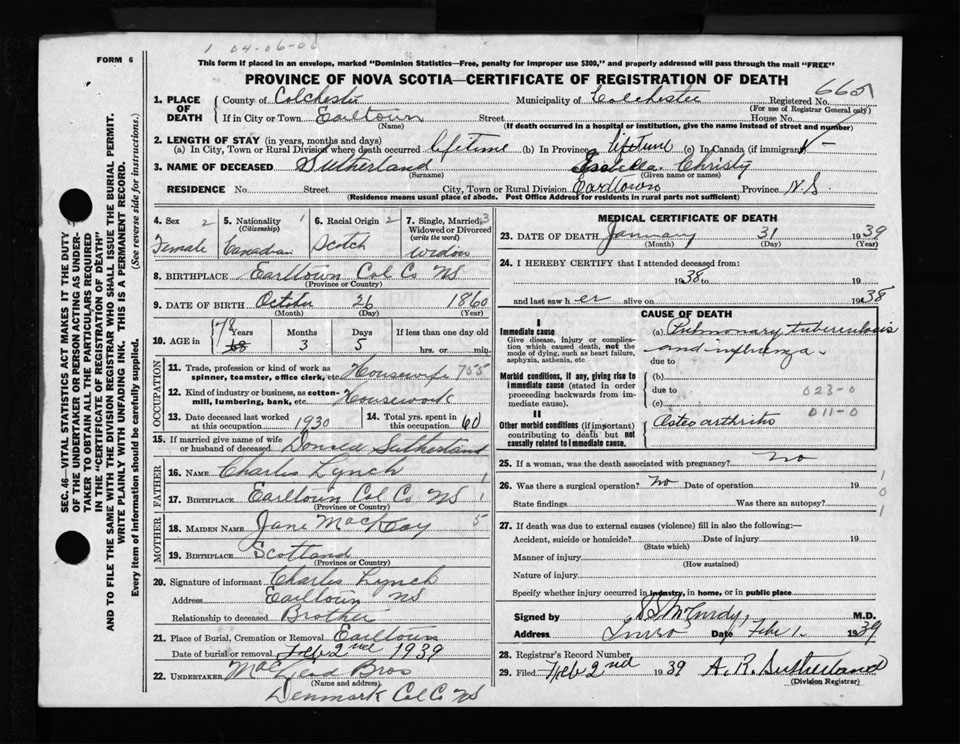 1 04-06-00
FORM 6
This form if placed in an envelope, marked "Dominion Statistics—Free, penalty for improper use $300," and properly addressed will pass through the mail "FREE"
PROVINCE OF NOVA SCOTIA—CERTIFICATE OF REGISTRATION OF DEATH
1. PLACE OF DEATH County of Colchester Municipality of Colchester Registered No.
(For use of Registrar General only)
If in City or Town Earltown Street House No.
(Name) (If death occurred in a hospital or institution, give the name instead of street and number)
2. LENGTH OF STAY (in years, months and days)
(a) In City, Town or Rural Division where death occurred lifetime (b) In Province lifetime (c) In Canada (if immigrant)
3. NAME OF DECEASED Sutherland Isabella Christy
(Surname) (Given name or names)
RESIDENCE No. Street City, Town or Rural Division Earltown Province N.S.
(Residence means usual place of abode. Post Office Address for residents in rural parts not sufficient)
SEC. 46—VITAL STATISTICS ACT MAKES IT THE DUTY
OF THE UNDERTAKER OR PERSON ACTING AS UNDER-
TAKER TO OBTAIN ALL THE PARTICULARS REQUIRED
IN THE "CERTIFICATE OF REGISTRATION OF DEATH"
AND TO FILE THE SAME WITH THE DIVISION REGISTRAR WHO SHALL ISSUE THE BURIAL PERMIT.
WRITE PLAINLY WITH UNFADING INK. THIS IS A PERMANENT RECORD.
Every item of information should be carefully supplied. (See reverse side for instructions.)
4. Sex 2 5. Nationality 1 6. Racial Origin 2 7. Single, Married, 3
(Citizenship) Widowed or Divorced
(write the word)
Female Canadian Scotch Widow
8. BIRTHPLACE Earltown Col Co NS
(Province or Country)
9. DATE OF BIRTH October 26 1860
(Month) (Day) (Year)
10. AGE in 78 Years 3 Months 5 Days If less than one day old
hrs. or min.
OCCUPATION
11. Trade, profession or kind of work as
spinner, teamster, office clerk, etc. Housewife 755
12. Kind of industry or business, as cotton-
mill, lumbering, bank, etc. Housework
13. Date deceased last worked
at this occupation 1930
14. Total yrs. spent in
this occupation 60
15. If married give name of wife
or husband of deceased Donald Sutherland
FATHER
16. Name Charles Lynch
17. Birthplace Earltown Col Co NS 1
(Province or Country)
MOTHER
18. Maiden Name Jane MacKay 5
19. Birthplace Scotland
(Province or Country)
20. Signature of informant Charles Lynch
Address Earltown NS
Relationship to deceased Brother
21. Place of Burial, Cremation or Removal Earltown
Date of burial or removal Feb 2nd 1939
22. UNDERTAKER MacLeod Bros
(Name and address)
Denmark Col Co NS
MEDICAL CERTIFICATE OF DEATH
23. DATE OF DEATH January 31 1939
(Month) (Day) (Year)
24. I HEREBY CERTIFY that I attended deceased from:
1938 to 19
and last saw her alive on 1938
CAUSE OF DEATH
I
Immediate cause
Give disease, injury or complica-
tion which caused death, not the
mode of dying, such as heart failure,
asphyxia, asthenia, etc
(a) Pulmonary tuberculosis
and influenza
due to
Morbid conditions, if any, giving rise to
immediate cause (stated in order
proceeding backwards from im-
mediate cause).
(b)
due to
(c)
023-0
011-0
II
Other morbid conditions (if important)
contributing to death but not
causally related to immediate cause.
Osteo arthritis
25. If a woman, was the death associated with pregnancy? no
26. Was there a surgical operation? no Date of operation 19
State findings Was there an autopsy?
27. If death was due to external causes (violence) fill in also the following:—
Accident, suicide or homicide? Date of injury 19
(State which)
Manner of injury
(How sustained)
Nature of injury
Specify whether injury occurred in industry, in home, or in public place
Signed by M.D.
Address Truro Date Feb 1. 1939
28. Registrar's Record Number
29. Filed Feb 2nd 1939 A. R. Sutherland
(Division Registrar)